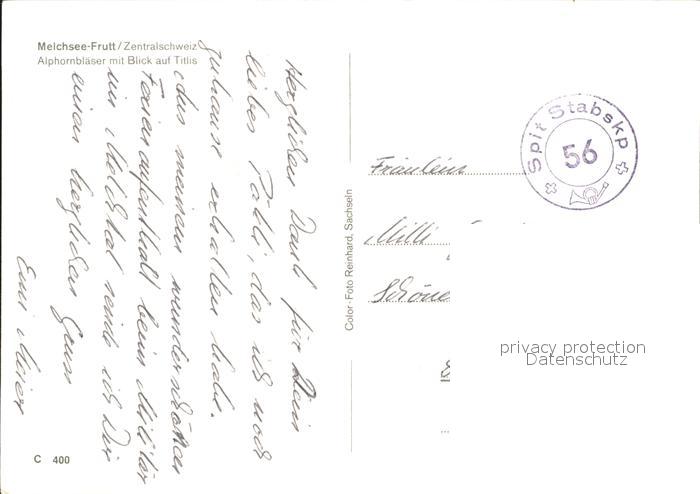 Melchsee-Frutt / Zentralschweiz
Alphornbläser mit Blick auf Titlis
Herzlichen Dank für Dein
liebes Päkli, das ich noch
zuhause erhalten habe.
Aus meinem wunderschönen
Ferienaufenthalt beim Militär
im Melchtal sende ich Dir
einen herzlichen Gruss
Emi Meier
C 400
Color-Foto Reinhard, Sachseln
Spit Stabskp
56
Fräulein
Milli
Schöne
privacy protection
Datenschutz